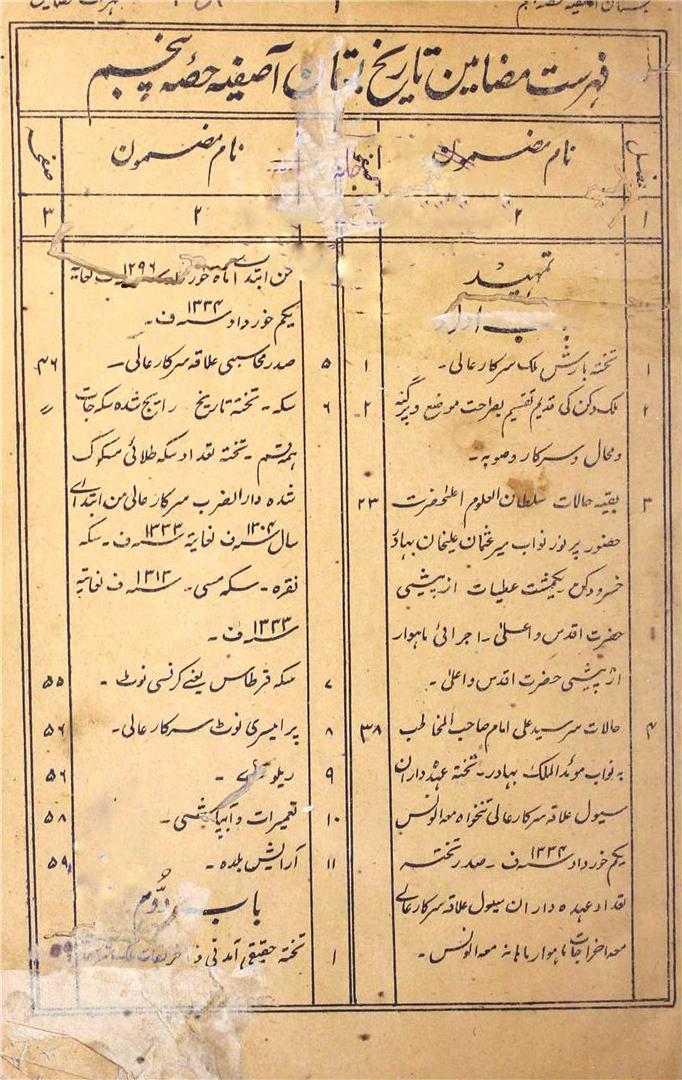 فہرست مضامین تاریخ بستان آصفیہ حصہ پنجم
فصل
نام مضمون
صفحہ
نام مضمون
صفحہ
۱
۲
۲
۳
تمہید
باب اول
۱
تختہ بارش ملک سرکارعالی۔
۱
۲
ملک دکن کی قدیم تقسیم بصراحت موضع و پرگنہ
۲
و محال و سرکار و صوبہ۔
۳
بقیہ حالات سلطان العلوم اعلحضرت
۲۳
حضور پر نور نواب میر عثمان علیخان بہادر
خسرو دکن یکمشت عطیات از پیشی
حضرت اقدس و اعلیٰ ۔ اجرائی ماہوار
از پیشی حضرت اقدس و اعلیٰ ۔
۴
حالات سر سید علی امام صاحب المخاطب
۳۸
بہ نواب موئد الملک بہادر۔ تختہ عہدہ داران
سیول علاقہ سرکارعالی تنخواہ معہ الونس
یکم خورداد ۱۳۳۴ سنہ ف ۔ صدر تختہ
تعداد عہدہ داران سیول علاقہ سرکار عالے
معہ اخراجات ماہوار ماہانہ معہ الونس ۔
من ابتداء ماہ خور ۱۲۹۶ ف لغایتہ
یکم خورداد ۱۳۳۴ سنہ ف ۔
۵
صدر محاسبی علاقہ سرکار عالی ۔
۴۶
۶
سکہ ۔ تختہ تاریخ رایج شدہ سکہ جات
〃
ہمہ قسم ۔ تختہ تعداد سکہ طلائی مسکوک
شدہ دارالضرب سرکارعالی من ابتدائے
سال ۱۳۰۴ سنہ ف لغایتہ ۱۳۳۳ سنہ ف ۔ سکہ
نقرہ ۔ سکہ مسی ۔ ۱۳۱۳ سنہ ف لغایتہ
۱۳۳۳ سنہ ف ۔
۷
سکہ قرطاس یعنے کرنسی نوٹ ۔
۵۵
۸
پرامیسری نوٹ سرکار عالی۔
۵۶
۹
ریلوے ۔
۵۶
۱۰
تعمیرات و آبپاشی ۔
۵۸
۱۱
آرایش بلدہ ۔
۵۹
باب دوم
۱
تختہ حقیقی آمدنی